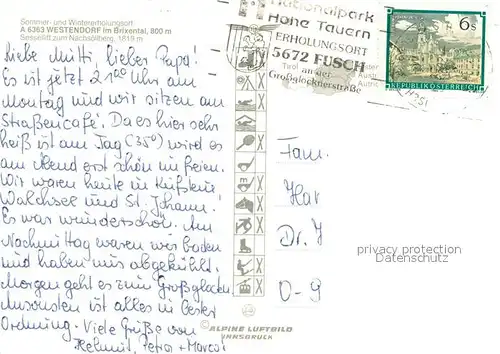 Sommer- und Wintererholungsort
A 6363 WESTENDORF im Brixental, 800 m
Sessellift zum Nachsöllberg, 1819 m
Liebe Mutti, lieber Papa!
Es ist jetzt 21⁰⁰ Uhr am
Montag und wir sitzen am
Straßencafé. Da es hier sehr
heiß ist am Tag (35°) wird es
am Abend erst schön im freien.
Wir waren heute in Kufstein
Walchsee und St. Johann!
Es war wunderschön. Am
Nachmittag waren wir baden
und haben uns abgekühlt.
Morgen geht es zum Großglockn
Ansonsten ist alles in bester
Ordnung. Viele Grüße von
Helmut, Petra + Marcel
Nationalpark
Hohe Tauern
ERHOLUNGSORT
5672 FUSCH
an der
Großglocknerstraße
Tirol
6 S
REPUBLIK ÖSTERREICH
Fam.
Har
Dr. J
D-9
privacy protection
Datenschutz
© ALPINE LUFTBILD
INNSBRUCK